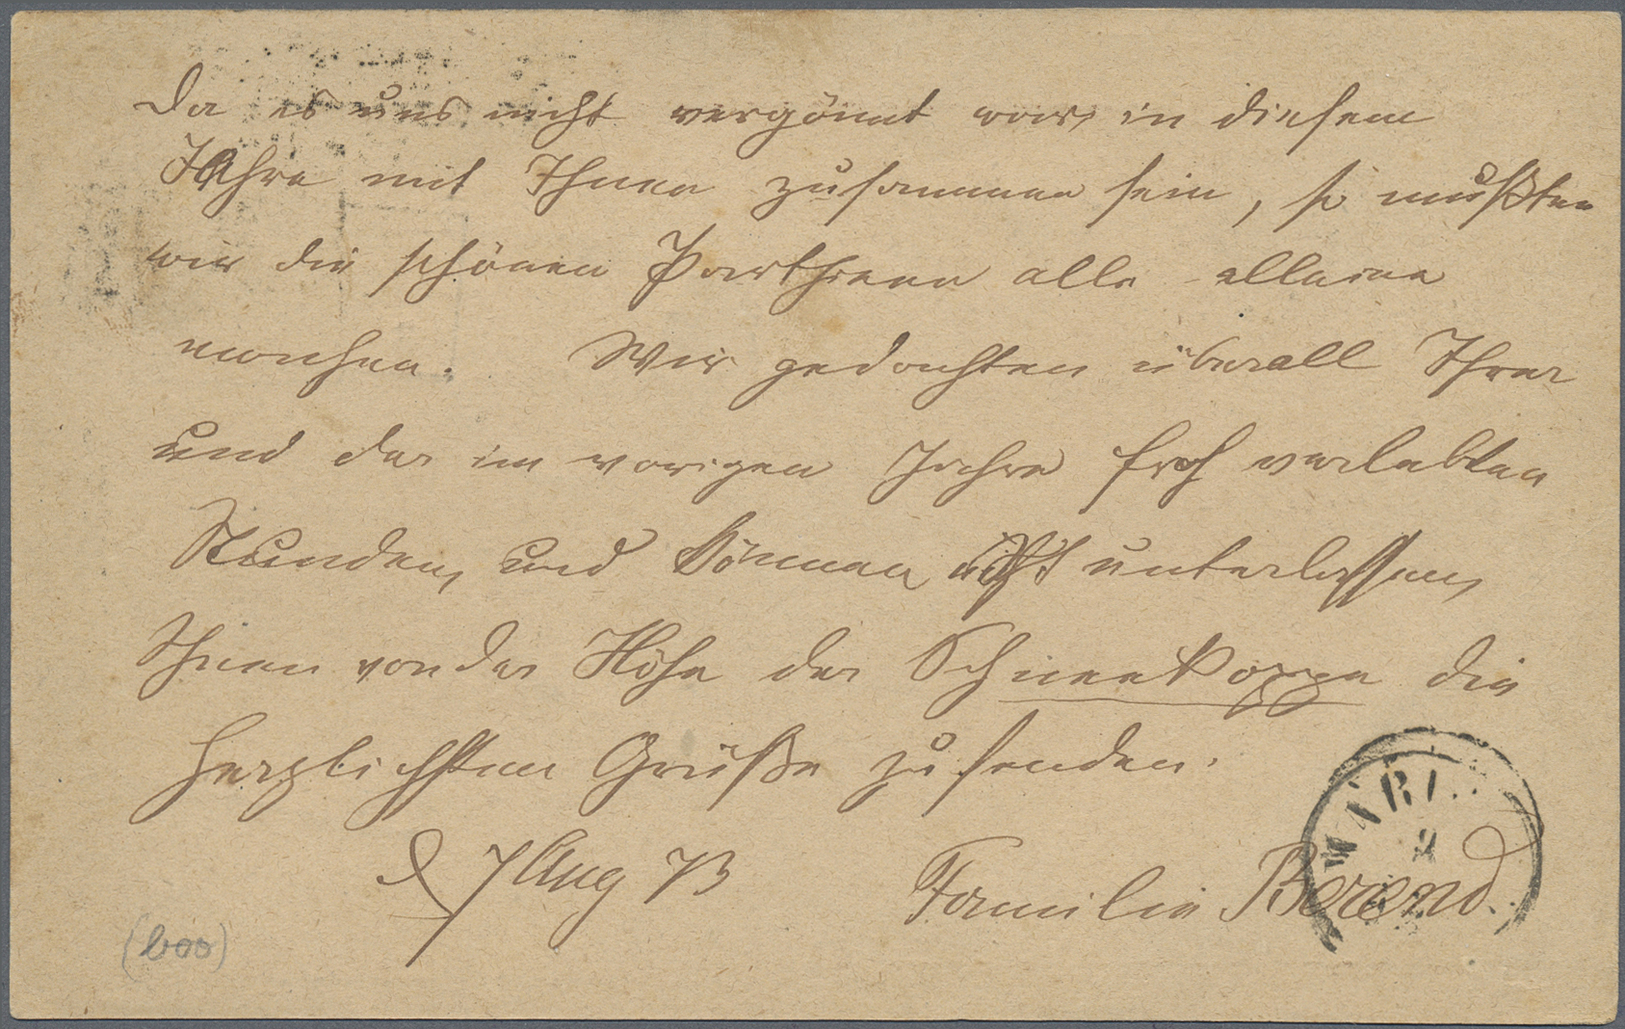 Da es uns nicht vergönnt war, in diesem
Jahre mit Ihnen zusammen sein, so mußten
wir die schönen Parthieen alle alleine
machen. Wir gedachten überall Ihrer
und der im vorigen Jahre froh verlebten
Stunden, und können nicht unterlassen,
Ihnen von der Höhe der Schneekoppe die
herzlichsten Grüße zu senden.
d 7 Aug 73 Familie Berend.
WARI
9
(600)